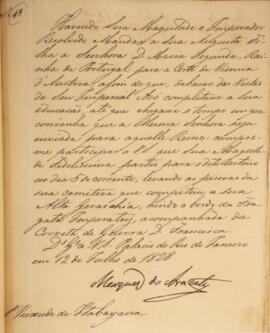 N.º 48
Havendo Sua Magestade o Imperador
Resolvido Mandar a Sua Augusta Fi
lha a Senhora D. Maria Segunda, Rai
nha de Portugal para a Corte de Vienna
d'Austria afim de que, debaixo das vistas
de Seu Imperial Avô complete a sua
educação até que chegue o tempo em que
convenha que a Mesma Senhora seja
enviada para aquelle Reino: cumpre-
me participar a V. S. que Sua Magestade
Fidelissima partio para o dito destino
no dia 5 do corrente, levando as pessoas da
sua comitiva que competem a sua
Alta Gerarchia, hindo a bordo da Fra
gata Imperatriz, acompanhada da
Corveta de Guerra D. Francisca.
D.s G.e a V. S. Palacio do Rio de Janeiro
em 12 de Julho de 1828
Marquez do Aracaty
Visconde de Itabayana